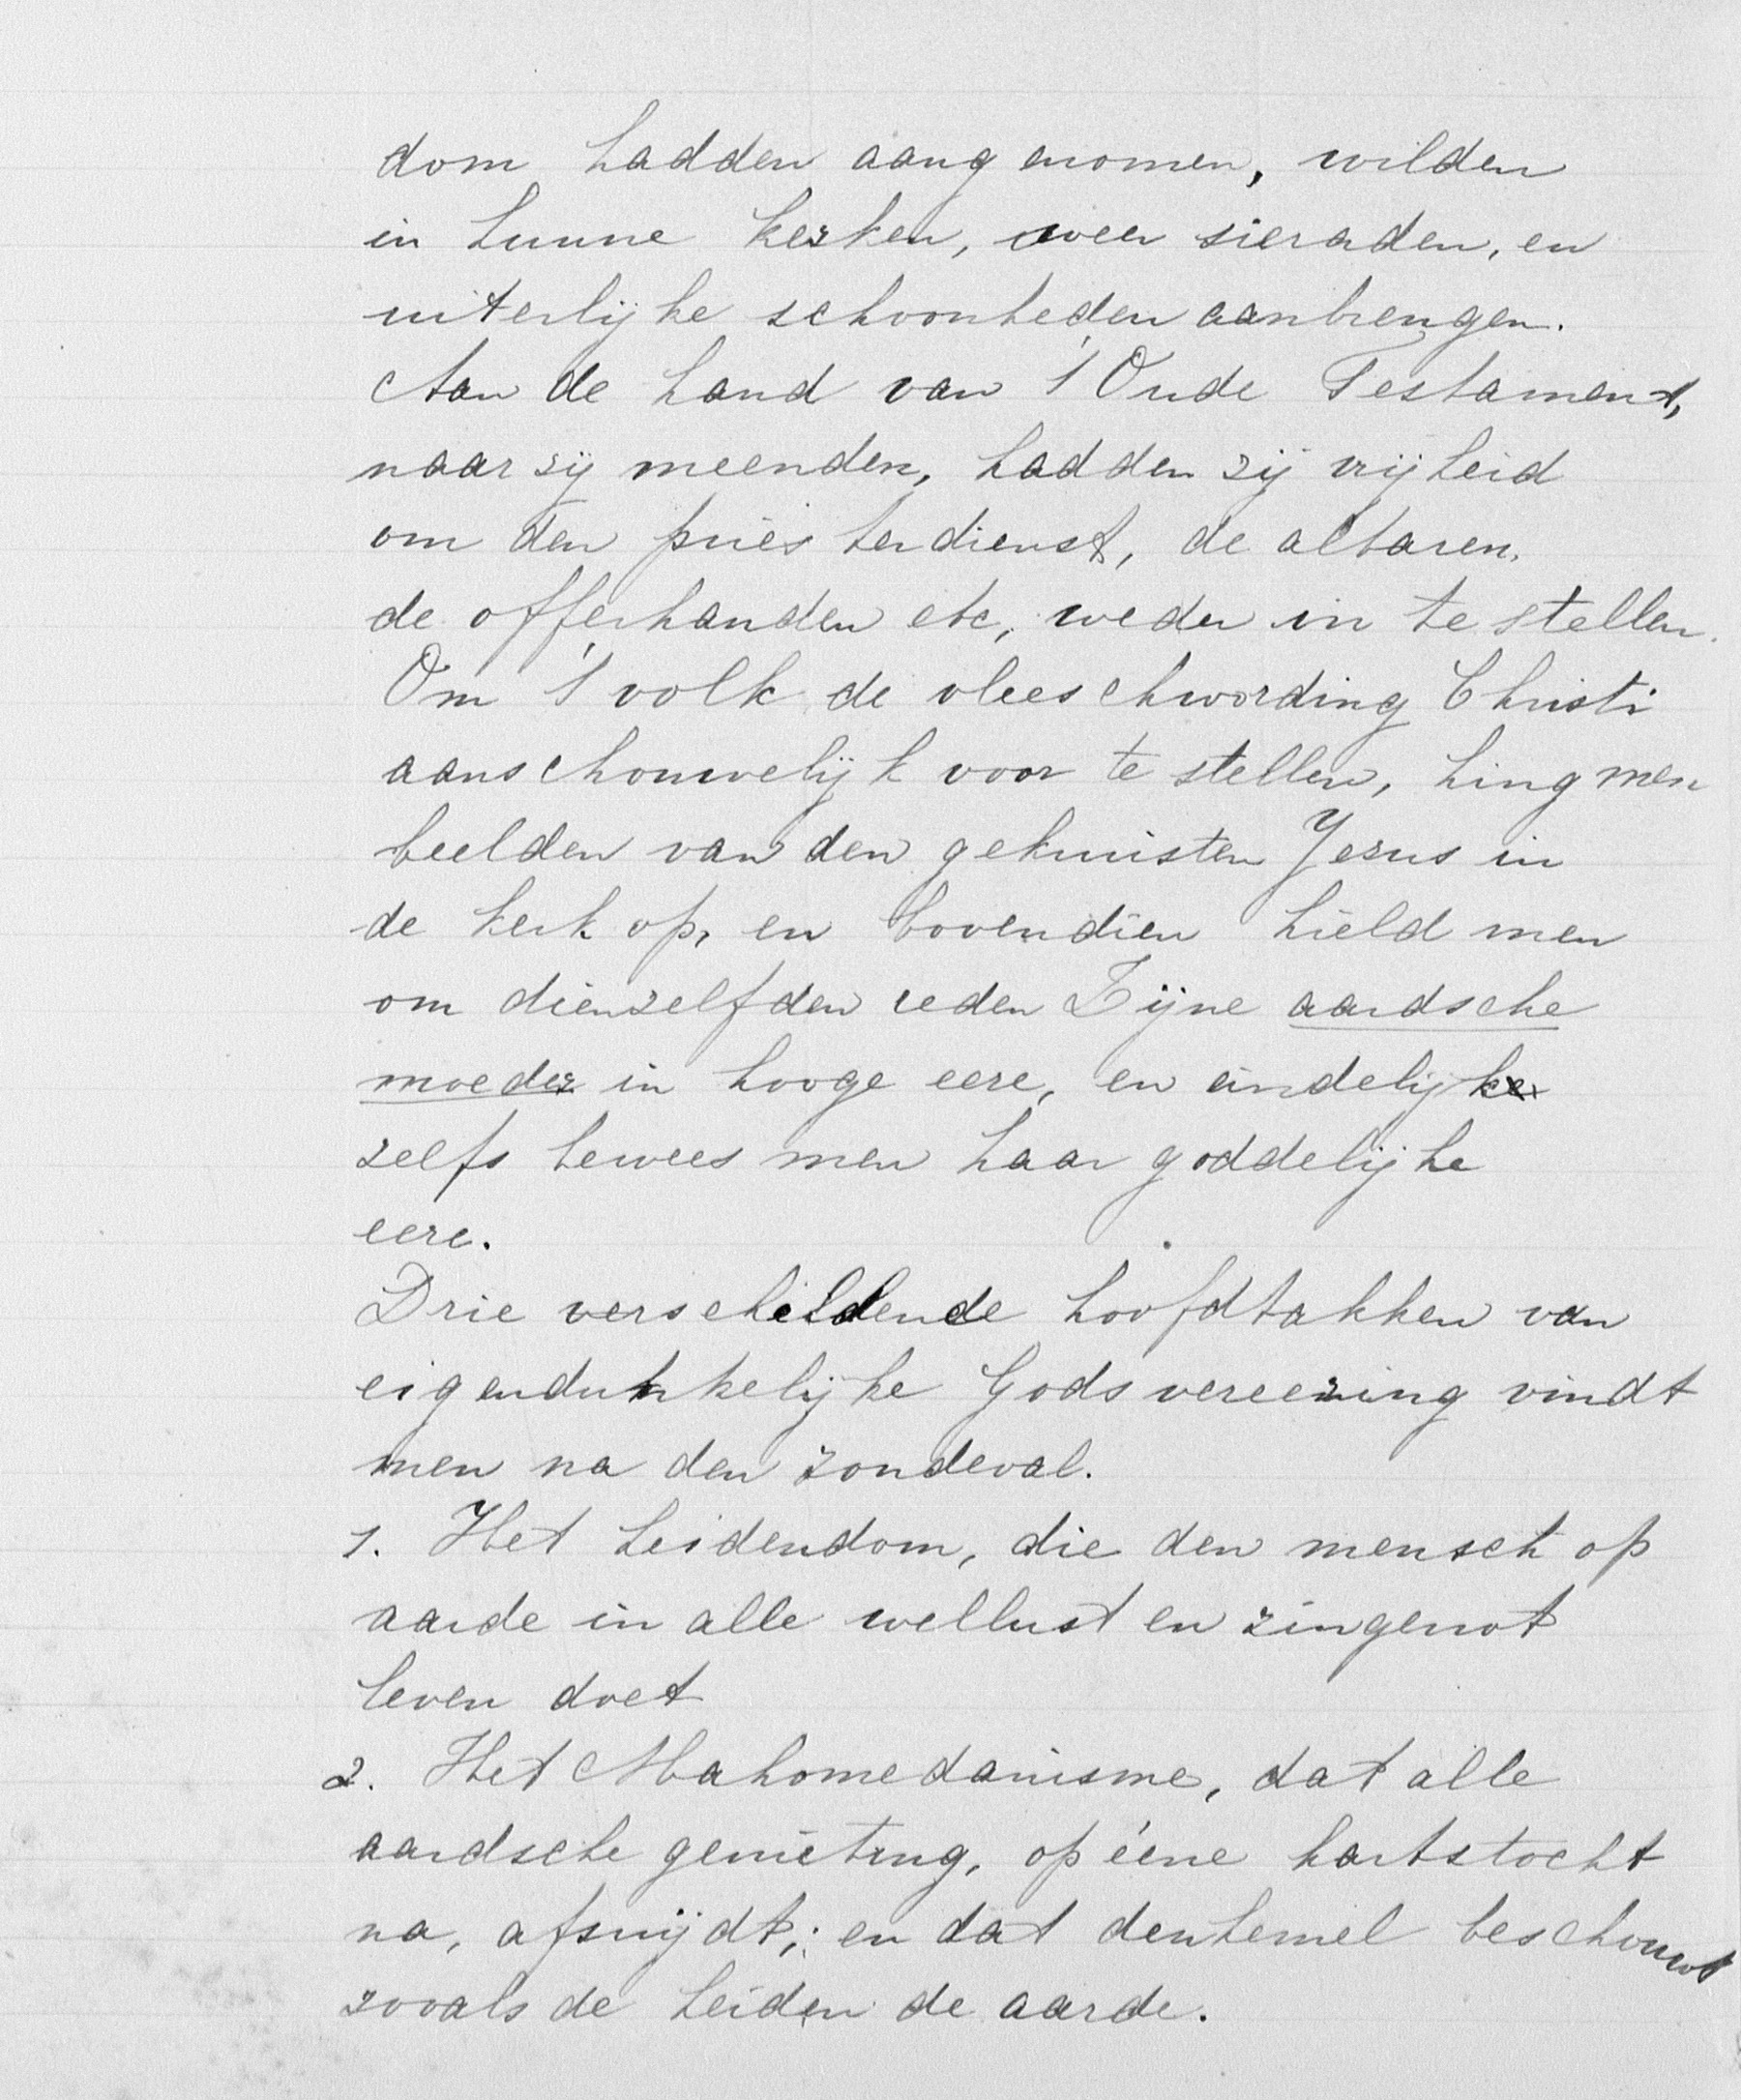 dom hadden aangenomen, wilden
in hunne kerken, weer sieraden, en
uiterlijke schoonheden aanbrengen.
Aan de hand van 't Oude Testament,
naar zij meenden, hadden zij vrijheid
om den priesterdienst, de altaren,
de offerhanden etc, weder in te stellen.
Om 't volk de vleeschwording Christi
aanschouwelijk voor te stellen, hing men
beelden van den gekruisten Jezus in
de kerk op, en bovendien hield men
om dienzelfden reden Zijne aardsche
moeder in hooge eere, en eindelijk
zelfs bewees men haar goddelijke
eere.
Drie verschillende hoofdtakken van
eigendunkelijke Godsvereering vindt
men na den zondeval.
1. Het heidendom, die den mensch op
aarde in alle wellust en zingenot
leven doet
2. Het Mahomedanisme, dat alle
aardsche genieting, op éene hartstocht
na, afsnijdt; en dat den hemel beschouwt
zooals de heiden de aarde.